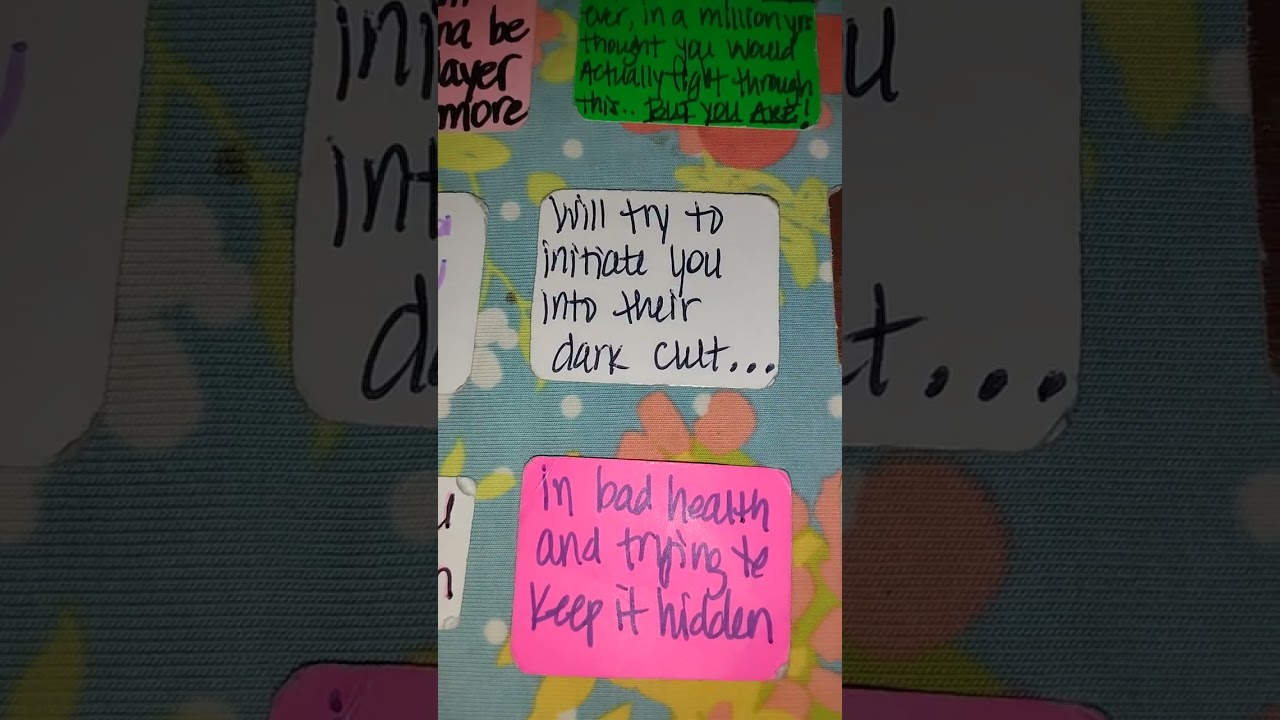 na be
ayer
more
ever, in a million yrs
thought you would
Actually fight through
this.. BUT YOU ARE!
Will try to
initiate you
into their
dark cult...
in bad health
and trying to
keep it hidden